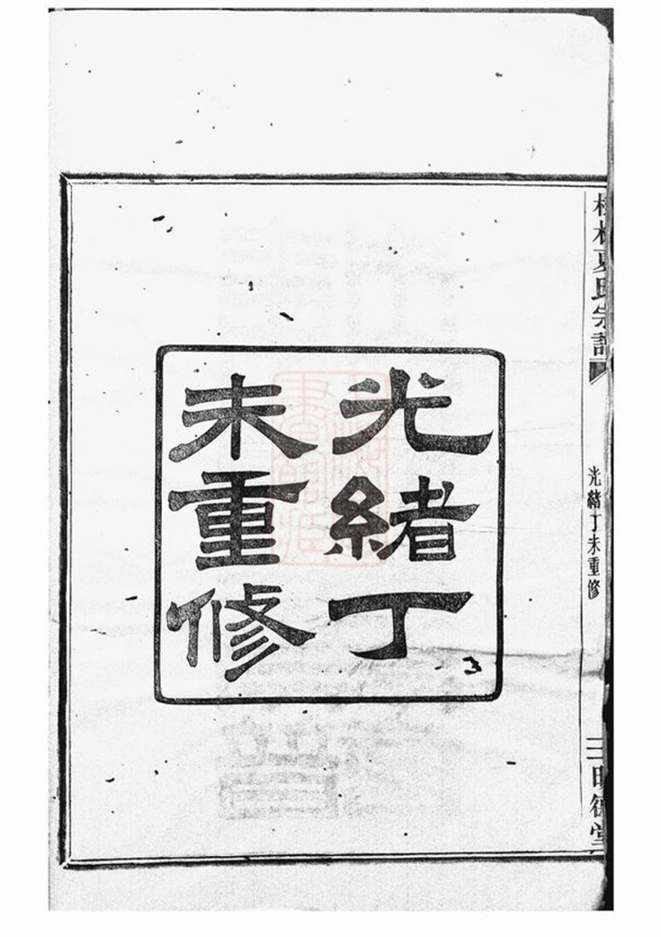 光緒丁
未重修
夏氏宗譜
光緒丁未重修
三 明德堂